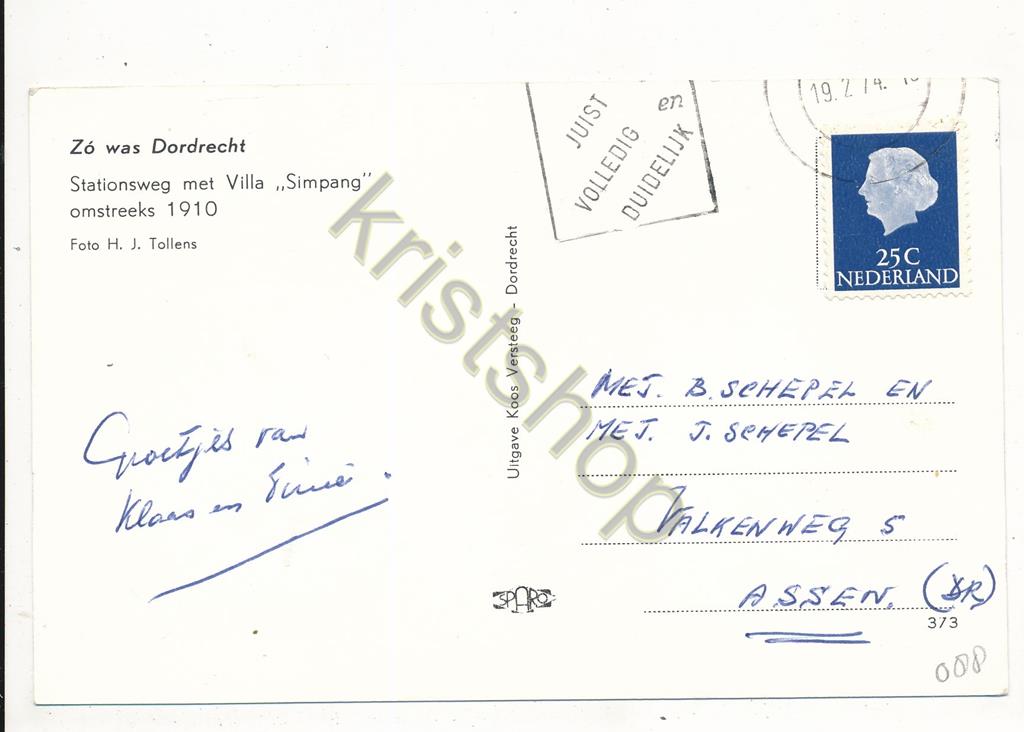 Zó was Dordrecht
Stationsweg met Villa „Simpang"
omstreeks 1910
Foto H. J. Tollens
Groetjes van
Klaas en
Uitgave Koos Versteeg - Dordrecht
SPARO
JUIST
VOLLEDIG en
DUIDELIJK
19.2.74.
25C
NEDERLAND
MEJ. B. SCHEPEL EN
MEJ. J. SCHEPEL
VALKENWEG 5
ASSEN. (DR)
373
008
kristshop